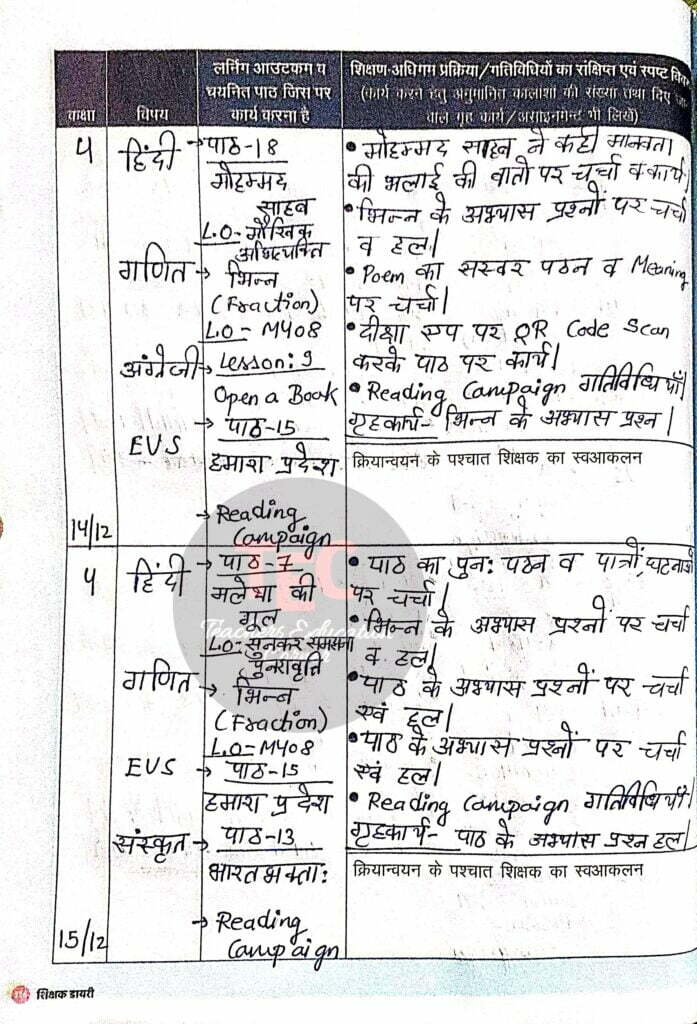 कक्षा
विषय
लर्निंग आउटकम व
चयनित पाठ जिस पर
कार्य करना है
शिक्षण-अधिगम प्रक्रिया/गतिविधियों का संक्षिप्त एवं स्पष्ट
(कार्य करने हेतु अनुमानित कालांशों की संख्या तथा दिए
वाले गृह कार्य/असाइनमेन्ट भी लिखें)
4
हिंदी
पाठ-18
मोहम्मद
साहब
L.O- मौखिक
अभिव्यक्ति
गणित→
भिन्न
(Fraction)
L.O- M408
अंग्रेजी→
Lesson: 9
Open a Book
EVS
→ पाठ-15
हमारा प्रदेश
→ Reading
Campaign
14/12
• मोहम्मद साहब ने कही मानवता
की भलाई की बातो पर चर्चा व कार्य।
• भिन्न के अभ्यास प्रश्नों पर चर्चा
व हल।
• Poem का सस्वर पठन व Meaning
पर चर्चा।
• दीक्षा एप पर QR Code Scan
करके पाठ पर कार्य।
• Reading Campaign गतिविधियाँ।
गृहकार्य- भिन्न के अभ्यास प्रश्न।
क्रियान्वयन के पश्चात शिक्षक का स्वआकलन
4
हिंदी
→ पाठ-7
मलेथा की
गूल
L.O- सुनकर समझना
पुनरावृत्ति
गणित→
भिन्न
(Fraction)
L.O- M408
EVS
→ पाठ-15
हमारा प्रदेश
संस्कृत→
पाठ-13
भारतभक्ता:
→ Reading
Campaign
15/12
• पाठ का पुन: पठन व पात्रों, घटनाओं
पर चर्चा।
• भिन्न के अभ्यास प्रश्नों पर चर्चा
व हल।
• पाठ के अभ्यास प्रश्नों पर चर्चा
एवं हल।
• पाठ के अभ्यास प्रश्नों पर चर्चा
एवं हल।
• Reading Campaign गतिविधियाँ।
गृहकार्य- पाठ के अभ्यास प्रश्न हल।
क्रियान्वयन के पश्चात शिक्षक का स्वआकलन
TEC
Teachers Education
शिक्षक डायरी